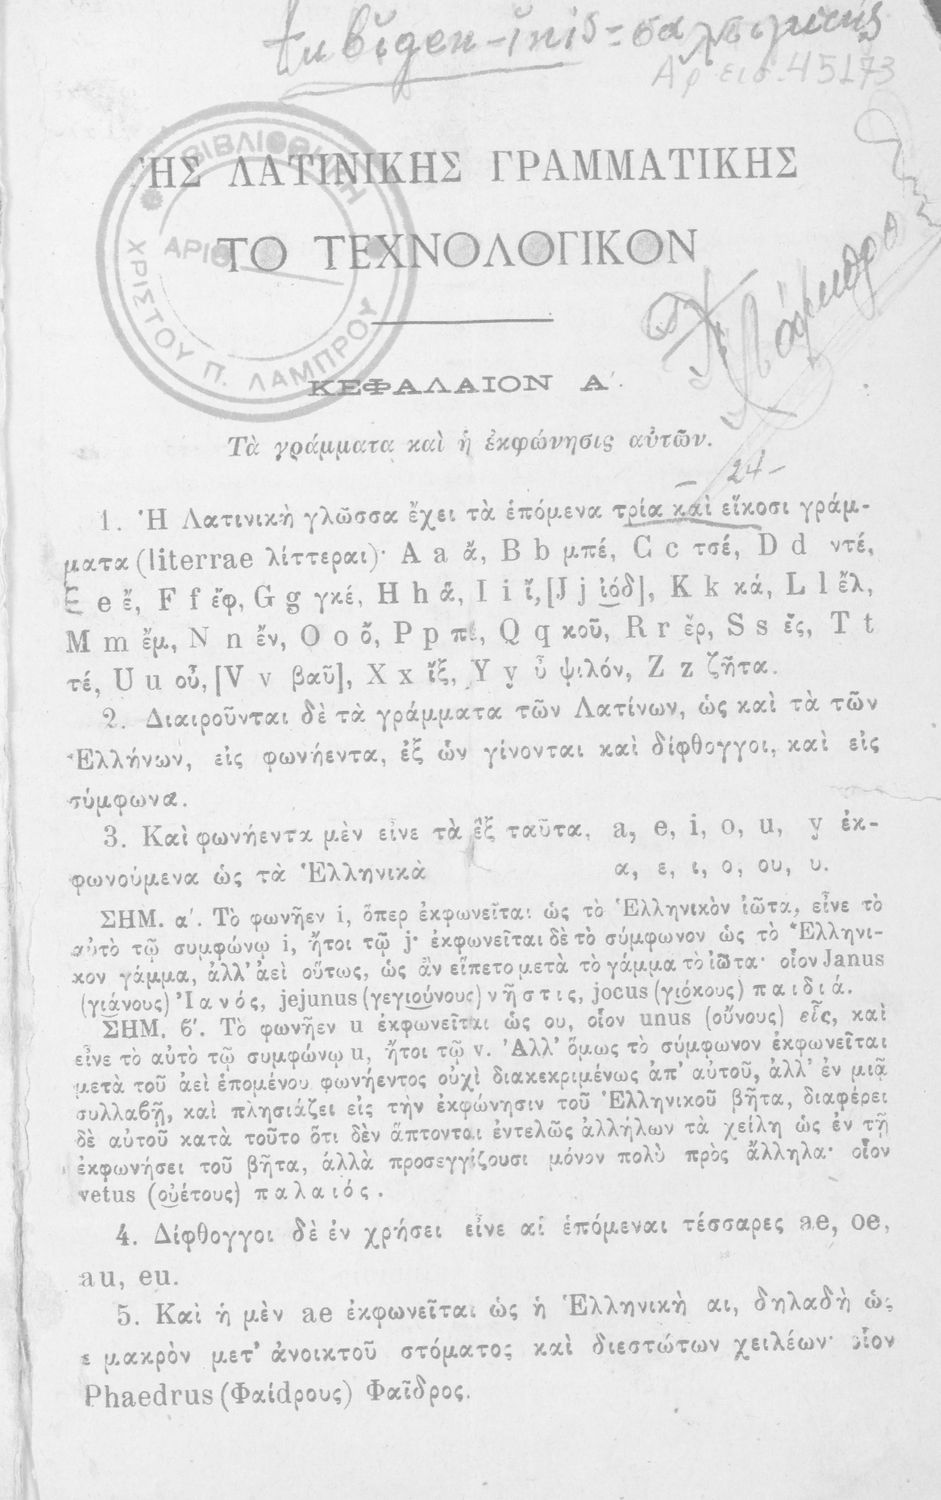 Αρ εισ. 45173
ΒΙΒΛΙΟΘΗΚΗ
ΧΡΙΣΤΟΥ Π. ΛΑΜΠΡΟΥ
ΑΡΙΘ.
ΗΣ ΛΑΤΙΝΙΚΗΣ ΓΡΑΜΜΑΤΙΚΗΣ
ΤΟ ΤΕΧΝΟΛΟΓΙΚΟΝ
ΚΕΦΑΛΑΙΟΝ Α΄.
Τὰ γράμματα καὶ ἡ ἐκφώνησις αὐτῶν.
– 24 –
1. Ἡ Λατινικὴ γλῶσσα ἔχει τὰ ἑπόμενα τρία καὶ εἴκοσι γράμ-
ματα (literrae λίττεραι)· A a ἄ, B b μπέ, C c τσέ, D d ντέ,
E e ἔ, F f ἔφ, G g γκέ, H h ἅ, I i ἴ, [J j ἰόδ], K k κά, L l ἔλ,
M m ἔμ, N n ἔν, O o ὄ, P p πέ, Q q κοῦ, R r ἔρ, S s ἔς, T t
τέ, U u οὖ, [V v βαῦ], X x ἴξ, Y y ὖ ψιλόν, Z z ζῆτα.
2. Διαιροῦνται δὲ τὰ γράμματα τῶν Λατίνων, ὡς καὶ τὰ τῶν
Ἑλλήνων, εἰς φωνήεντα, ἐξ ὧν γίνονται καὶ δίφθογγοι, καὶ εἰς
σύμφωνα.
3. Καὶ φωνήεντα μὲν εἶνε τὰ ἓξ ταῦτα, a, e, i, o, u, y ἐκ-
φωνούμενα ὡς τὰ Ἑλληνικὰ α, ε, ι, ο, ου, υ.
ΣΗΜ. α΄. Τὸ φωνῆεν i, ὅπερ ἐκφωνεῖται ὡς τὸ Ἑλληνικὸν ἰῶτα, εἶνε τὸ
αὐτὸ τῷ συμφώνῳ i, ἤτοι τῷ j· ἐκφωνεῖται δὲ τὸ σύμφωνον ὡς τὸ Ἑλληνι-
κὸν γάμμα, ἀλλ' ἀεὶ οὕτως, ὡς ἂν εἵπετο μετὰ τὸ γάμμα τὸ ἰῶτα· οἷον Janus
(γιάνους) Ἰανός, jejunus (γεγιούνους) νῆστις, jocus (γιόκους) παιδιά.
ΣΗΜ. β΄. Τὸ φωνῆεν u ἐκφωνεῖται ὡς ου, οἷον unus (οὔνους) εἷς, καὶ
εἶνε τὸ αὐτὸ τῷ συμφώνῳ u, ἤτοι τῷ v. Ἀλλ' ὅμως τὸ σύμφωνον ἐκφωνεῖται
μετὰ τοῦ ἀεὶ ἑπομένου φωνήεντος οὐχὶ διακεκριμένως ἀπ' αὐτοῦ, ἀλλ' ἐν μιᾷ
συλλαβῇ, καὶ πλησιάζει εἰς τὴν ἐκφώνησιν τοῦ Ἑλληνικοῦ βῆτα, διαφέρει
δὲ αὐτοῦ κατὰ τοῦτο ὅτι δὲν ἅπτονται ἐντελῶς ἀλλήλων τὰ χείλη ὡς ἐν τῇ
ἐκφωνήσει τοῦ βῆτα, ἀλλὰ προσεγγίζουσι μόνον πολὺ πρὸς ἄλληλα· οἷον
vetus (οὐέτους) παλαιός.
4. Δίφθογγοι δὲ ἐν χρήσει εἶνε αἱ ἑπόμεναι τέσσαρες ae, oe,
au, eu.
5. Καὶ ἡ μὲν ae ἐκφωνεῖται ὡς ἡ Ἑλληνικὴ αι, δηλαδὴ ὡς
ε μακρὸν μετ' ἀνοικτοῦ στόματος καὶ διεστώτων χειλέων· οἷον
Phaedrus (Φαίdρους) Φαῖδρος.